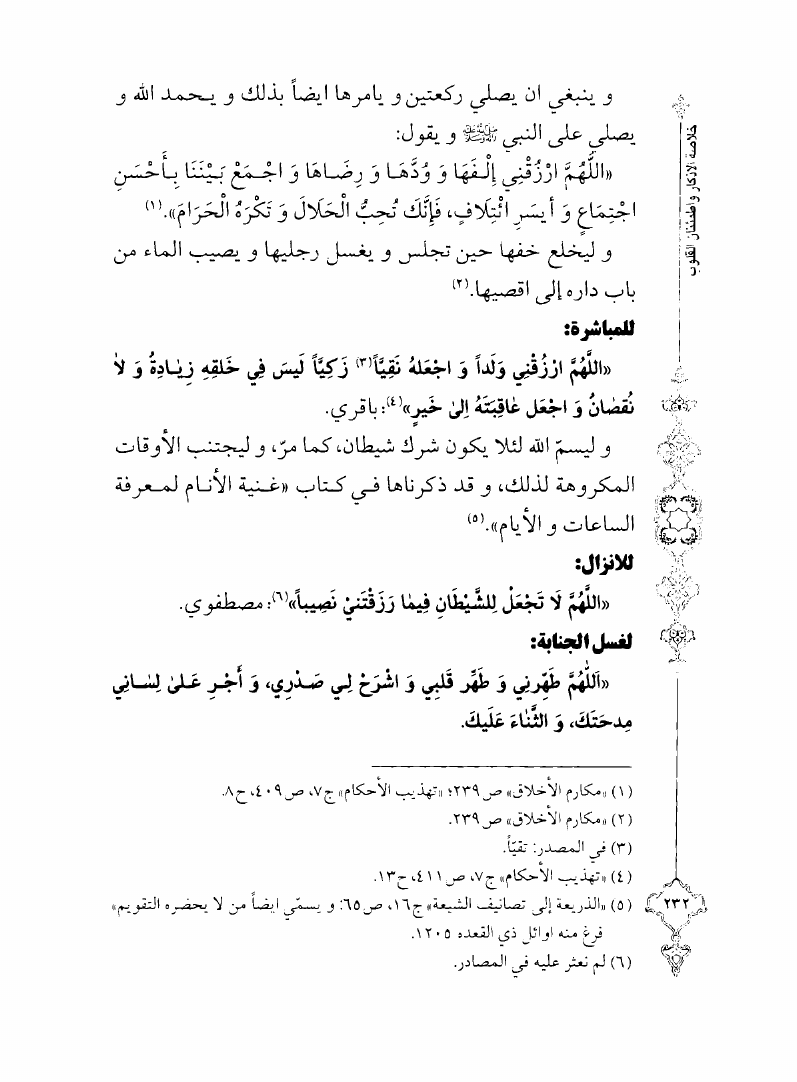 خلاصة الاذكار واطمئنان القلوب
و ينبغي ان يصلي ركعتين و يامرها ايضاً بذلك و يـحمد الله و
يصلي على النبي ﷺ و يقول:
«اللَّهُمَّ ارْزُقْنِي إِلْـفَهَا وَ وُدَّهَـا وَ رِضَـاهَا وَ اجْـمَعْ بَـيْنَنَا بِـأَحْسَنِ
اجْتِمَاعٍ وَ أَيسَرِ ائْتِلَافٍ، فَإِنَّكَ تُحِبُّ الْحَلَالَ وَ تَكْرَهُ الْحَرَامَ».(١)
و ليخلع خفها حين تجلس و يغسل رجليها و يصيب الماء من
باب داره إلى اقصيها.(٢)
للمباشرة:
«اللَّهُمَّ ارْزُقْنِي وَلَداً وَ اجْعَلهُ نَقِيّاً(٣) زَكِيّاً لَيسَ فِي خَلقِهِ زِيَـادَةٌ وَ لاٰ
نُقصَانٌ وَ اجْعَل عَاقِبَتَهُ إِلىٰ خَيرٍ»(٤): باقري.
و ليسمّ الله لئلا يكون شرك شيطان، كما مرّ، و ليجتنب الأوقات
المكروهة لذلك، و قد ذكرناها فـي كـتاب «غـنية الأنـام لمـعرفة
الساعات و الأيام».(٥)
للانزال:
«اللَّهُمَّ لَا تَجْعَلْ لِلشَّيْطَانِ فِيمَا رَزَقْتَنِيْ نَصِيباً»(٦): مصطفوي.
لغسل الجنابة:
«اَللَّهُمَّ طَهِّرنِي وَ طَهِّر قَلبِي وَ اشْرَحْ لِـي صَـدْرِي، وَ أَجْـرِ عَـلىٰ لِسَـانِي
مِدحَتَكَ، وَ الثَّنَاءَ عَلَيكَ.
(١) «مكارم الأخلاق» ص ٢٣٩؛ «تهذيب الأحكام» ج٧، ص ٤٠٩، ح٨.
(٢) «مكارم الأخلاق» ص ٢٣٩.
(٣) في المصدر: تقيّاً.
(٤) «تهذيب الأحكام» ج٧، ص ٤١١، ح١٣.
(٥) «الذريعة إلى تصانيف الشيعة» ج١٦، ص٦٥: و يسمّي ايضاً من لا يحضره التقويم»
فرغ منه اوائل ذي القعده ١٢٠٥.
(٦) لم نعثر عليه في المصادر.
٢٣٢